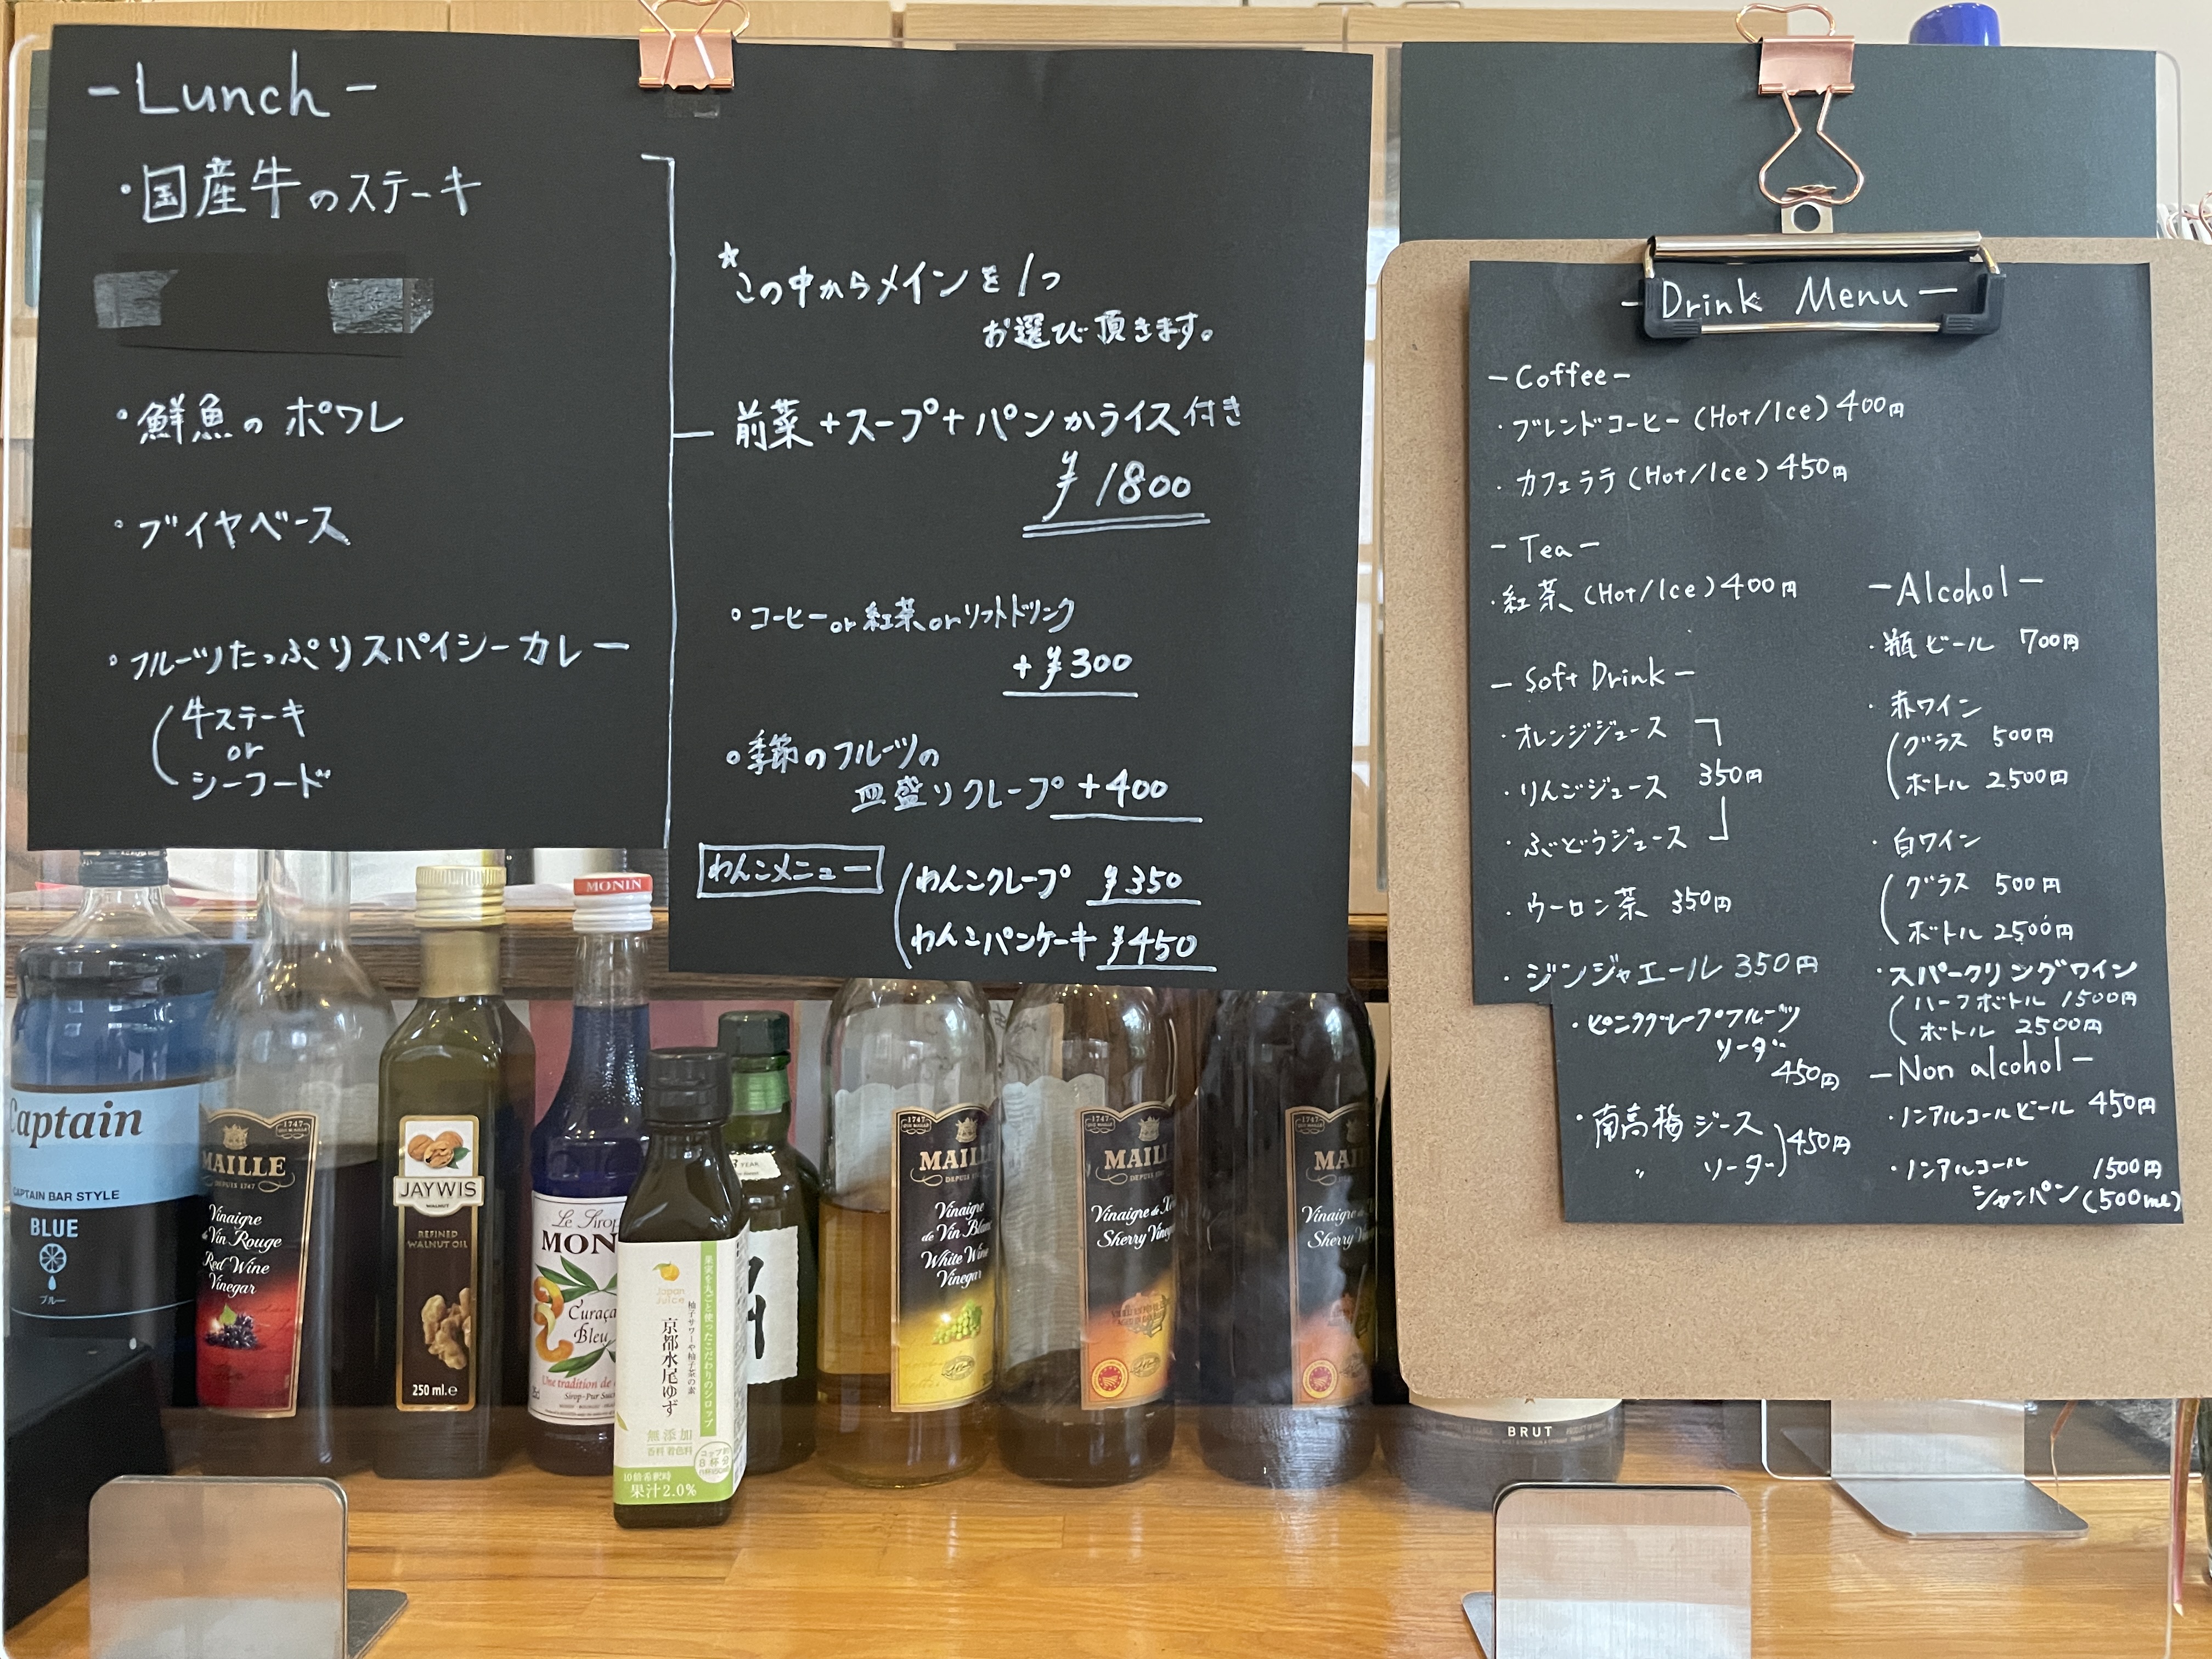 -Lunch-
・国産牛のステーキ
・鮮魚のポワレ
・ブイヤベース
・フルーツたっぷりスパイシーカレー
(牛ステーキ
or
シーフード
☆この中からメインを1つ
お選び頂きます。
前菜+スープ+パンかライス付き
¥1800
・コーヒーor紅茶orソフトドリンク
+¥300
・季節のフルーツの
皿盛りクレープ +400
わんこメニュー
(わんこクレープ ¥350
わんこパンケーキ ¥450
-Drink Menu-
-Coffee-
・ブレンドコーヒー(Hot/Ice)400円
・カフェラテ(Hot/Ice)450円
-Tea-
・紅茶(Hot/Ice)400円
-Soft Drink-
・オレンジジュース
・りんごジュース 350円
・ぶどうジュース
・ウーロン茶 350円
・ジンジャエール 350円
・ピンクグレープフルーツ
ソーダ
450円
・南高梅ジース
〃 ソーダ)450円
-Alcohol-
・瓶ビール 700円
・赤ワイン
(グラス 500円
ボトル 2500円
・白ワイン
(グラス 500円
ボトル 2500円
・スパークリングワイン
(ハーフボトル 1500円
ボトル 2500円
-Non alcohol-
・ノンアルコールビール 450円
・ノンアルコール 1500円
シャンパン(500ml)
Captain
CAPTAIN BAR STYLE
BLUE
ブルー
1747
MAILLE
DEPUIS 1747
Vinaigre
de Vin Rouge
Red Wine
Vinegar
JAYWIS
WALNUT
REFINED
WALNUT OIL
250 ml.e
MONIN
Le Sirop
MON
Curaça
Bleu
Une tradition de
Japan
Juice
果実を丸ごと使ったこだわりのシロップ
柚子サワーや柚子茶の素
京都水尾ゆず
無添加
香料 着色料
コップ約
8杯分
10倍希釈時
果汁2.0%
YEAR
1747
MAILL
DEPUIS
Vinaigre
de Vin Blanc
White Wine
Vinegar
1747
MAILL
DEPUIS
Vinaigre de Xé
Sherry Vineg
1747
MAI
DEPUIS
Vinaigre de
Sherry Vin
BRUT